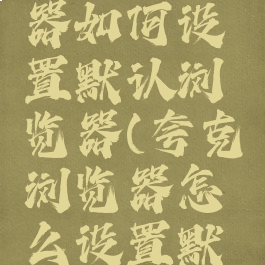 器如何设
置默认浏
览器(夸克
浏览器怎
么设置默